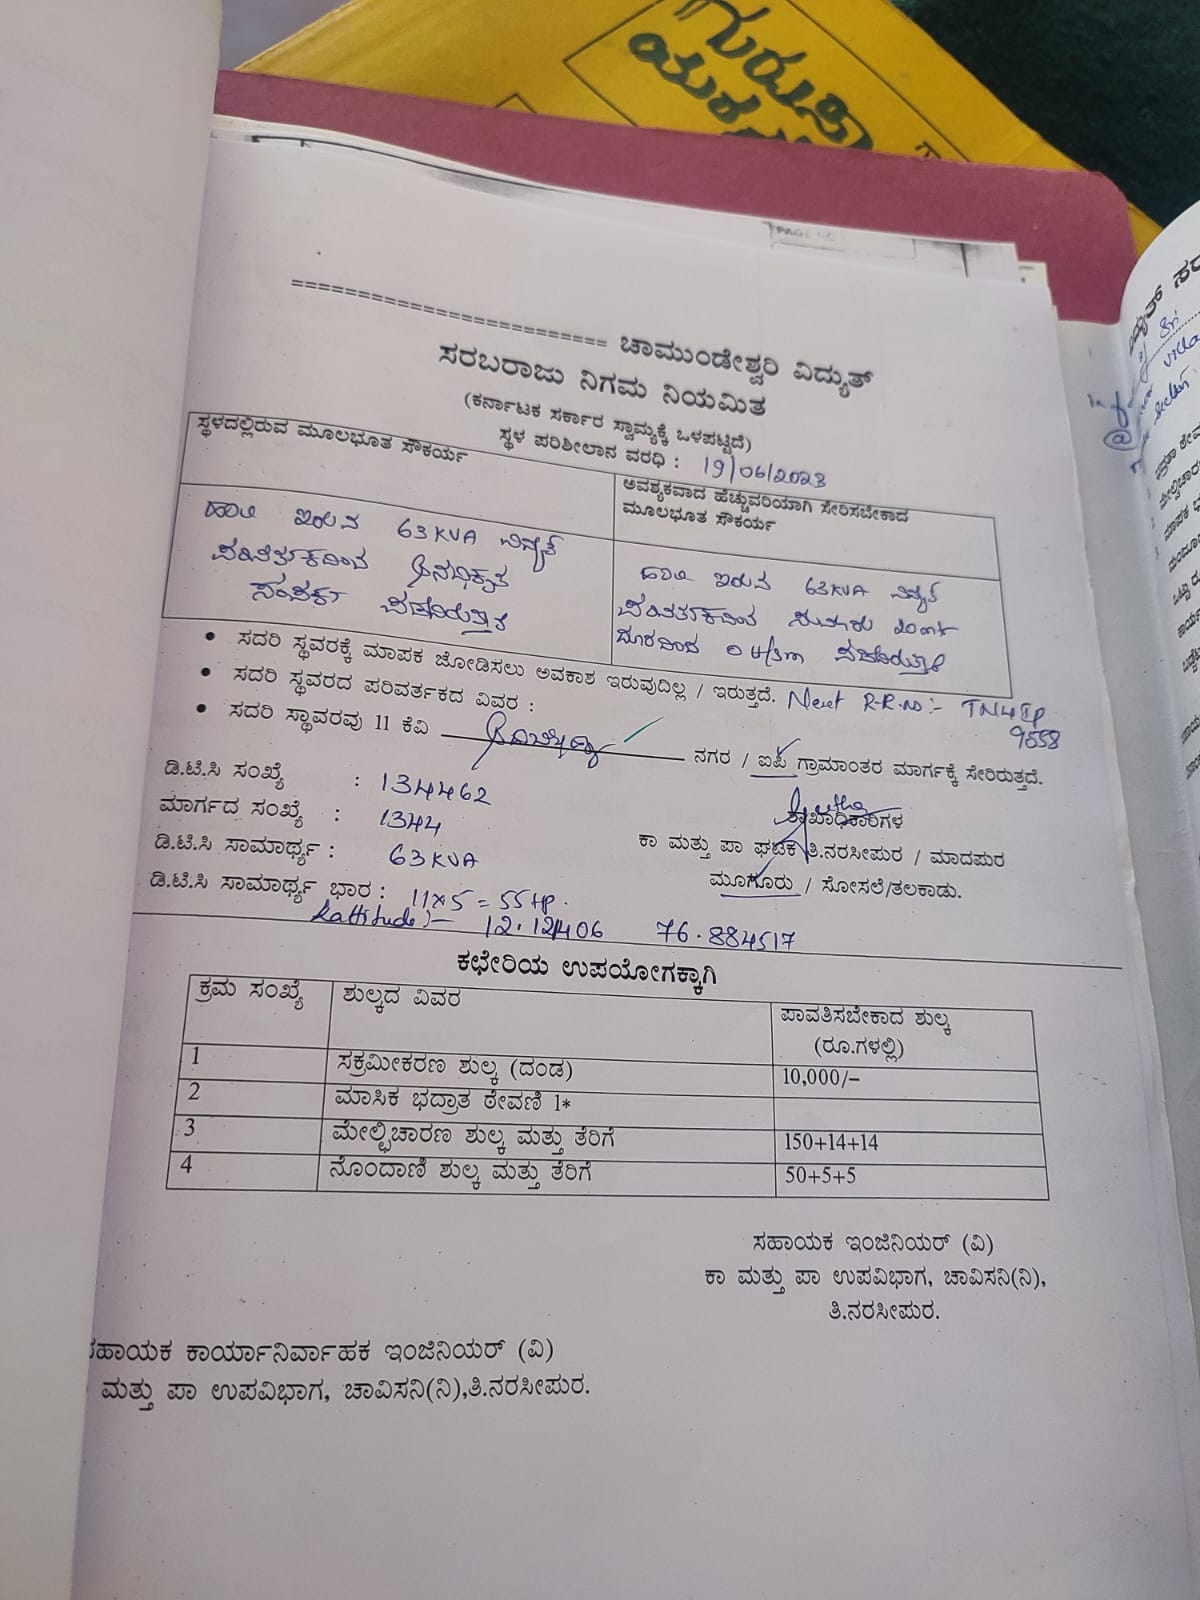 ಗುರುಸಿ
ಚಾಮುಂಡೇಶ್ವರಿ ವಿದ್ಯುತ್
ಸರಬರಾಜು ನಿಗಮ ನಿಯಮಿತ
(ಕರ್ನಾಟಕ ಸರ್ಕಾರ ಸ್ವಾಮ್ಯಕ್ಕೆ ಒಳಪಟ್ಟಿದೆ)
ಸ್ಥಳ ಪರಿಶೀಲಾನ ವರಧಿ : 19/06/2023
ಸ್ಥಳದಲ್ಲಿರುವ ಮೂಲಭೂತ ಸೌಕರ್ಯ
ಅವಶ್ಯಕವಾದ ಹೆಚ್ಚುವರಿಯಾಗಿ ಸೇರಿಸಬೇಕಾದ
ಮೂಲಭೂತ ಸೌಕರ್ಯ
ಹಾಲಿ ಇರುವ 63 KVA ವಿದ್ಯುತ್
ಪರಿವರ್ತಕದಿಂದ ಅನಧಿಕೃತ
ಸಂಪರ್ಕ ಪಡೆದಿರುತ್ತಾರೆ
ಹಾಲಿ ಇರುವ 63KVA ವಿದ್ಯುತ್
ಪರಿವರ್ತಕದಿಂದ
ದೂರದಿಂದ
• ಸದರಿ ಸ್ಥವರಕ್ಕೆ ಮಾಪಕ ಜೋಡಿಸಲು ಅವಕಾಶ ಇರುವುದಿಲ್ಲ / ಇರುತ್ತದೆ.
• ಸದರಿ ಸ್ಥವರದ ಪರಿವರ್ತಕದ ವಿವರ : Next R.R.no:- TN4IP
9558
• ಸದರಿ ಸ್ಥಾವರವು 11 ಕೆವಿ ನಗರ / ಐಪಿ ಗ್ರಾಮಾಂತರ ಮಾರ್ಗಕ್ಕೆ ಸೇರಿರುತ್ತದೆ.
ಡಿ.ಟಿ.ಸಿ ಸಂಖ್ಯೆ : 134462
ಮಾರ್ಗದ ಸಂಖ್ಯೆ : 1344
ಡಿ.ಟಿ.ಸಿ ಸಾಮಾರ್ಥ್ಯ : 63 KVA
ಡಿ.ಟಿ.ಸಿ ಸಾಮಾರ್ಥ್ಯ ಭಾರ : 11*5 = 55 Hp.
ಶಾಖಾಧಿಕಾರಿಗಳ
ಕಾ ಮತ್ತು ಪಾ ಘಟಕ ತಿ.ನರಸೀಪುರ / ಮಾದಪುರ
ಮೂಗೂರು / ಸೋಸಲೆ/ತಲಕಾಡು.
Lattitude:- 12.121406 76.884517
ಕಛೇರಿಯ ಉಪಯೋಗಕ್ಕಾಗಿ
ಕ್ರಮ ಸಂಖ್ಯೆ ಶುಲ್ಕದ ವಿವರ ಪಾವತಿಸಬೇಕಾದ ಶುಲ್ಕ
(ರೂ.ಗಳಲ್ಲಿ)
1 ಸಕ್ರಮೀಕರಣ ಶುಲ್ಕ (ದಂಡ) 10,000/-
2 ಮಾಸಿಕ ಭದ್ರಾತ ಠೇವಣಿ 1*
3 ಮೇಲ್ವಿಚಾರಣ ಶುಲ್ಕ ಮತ್ತು ತೆರಿಗೆ 150+14+14
4 ನೊಂದಾಣಿ ಶುಲ್ಕ ಮತ್ತು ತೆರಿಗೆ 50+5+5
ಸಹಾಯಕ ಇಂಜಿನಿಯರ್ (ವಿ)
ಕಾ ಮತ್ತು ಪಾ ಉಪವಿಭಾಗ, ಚಾವಿಸನಿ(ನಿ),
ತಿ.ನರಸೀಪುರ.
ಸಹಾಯಕ ಕಾರ್ಯಾನಿರ್ವಾಹಕ ಇಂಜಿನಿಯರ್ (ವಿ)
ಮತ್ತು ಪಾ ಉಪವಿಭಾಗ, ಚಾವಿಸನಿ(ನಿ),ತಿ.ನರಸೀಪುರ.